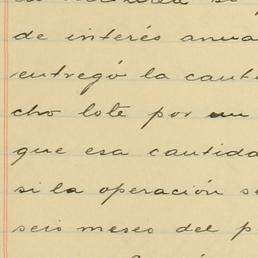 de interés anua
entregó la canti
cho lote por un
que esa cantida
si la operación se
seis meses del p